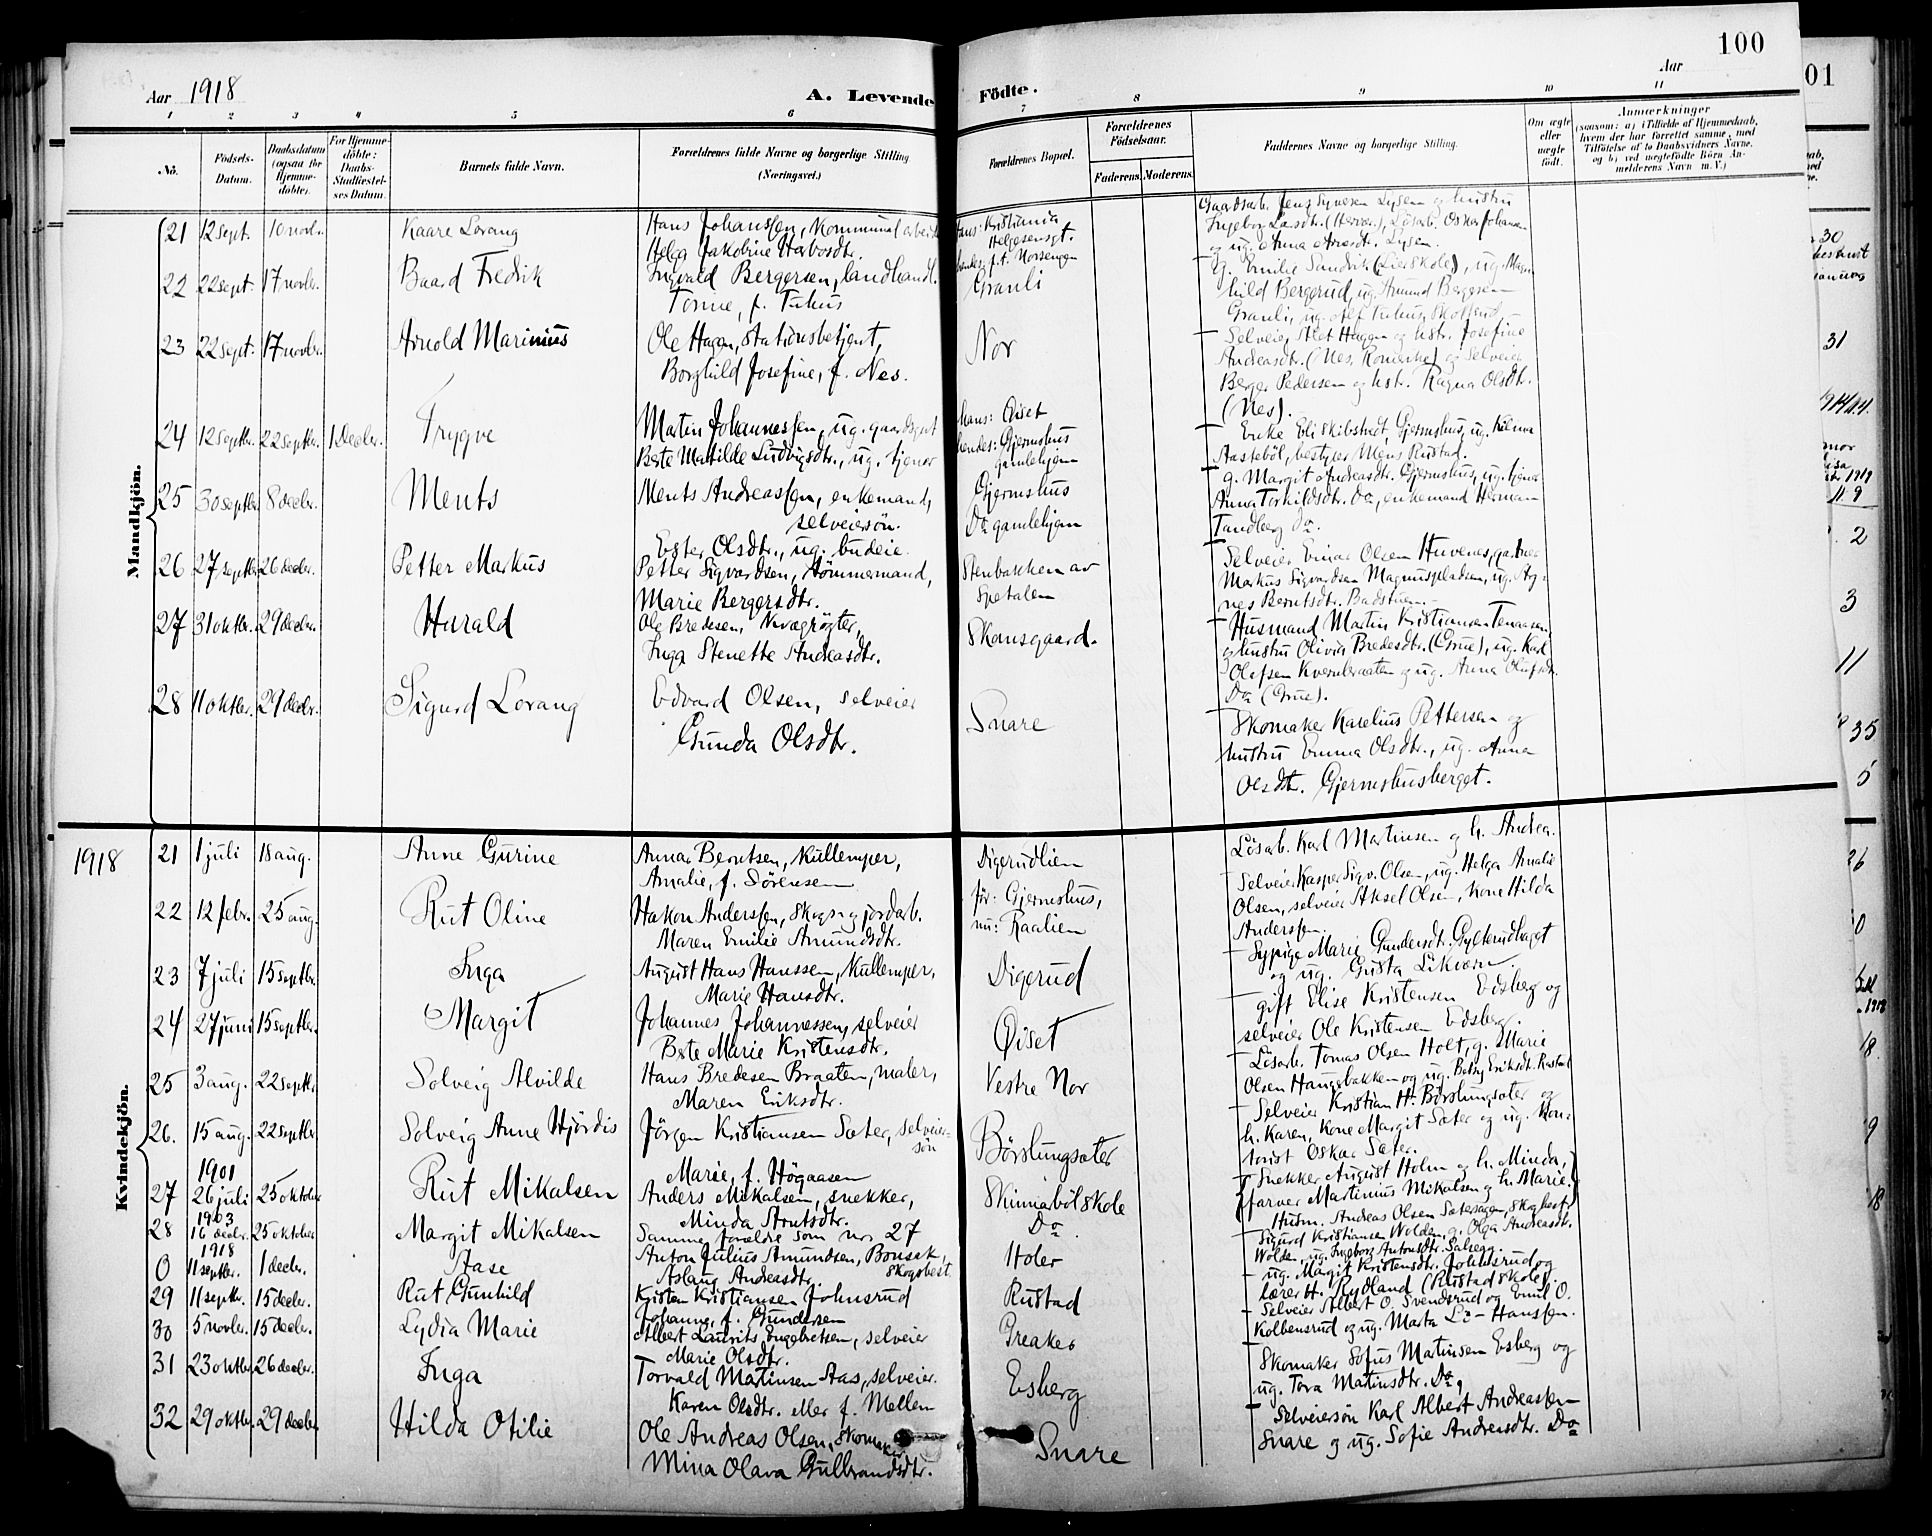 100
Aar 1918
A. Levende Födte.
Aar
01
1 2 3 4 5 6 7 8 9 10 11
No. Födsels-Datum. Daabsdatum (ogsaa for Hjemmedöbte). For Hjemmedöbte: Daabs-Stadfæstelses Datum. Barnets fulde Navn. Forældrenes fulde Navne og borgerlige Stilling (Næringsvei.) Forældrenes Bopæl. Forældrenes Födselsaar. Faderens. Moderens. Faddernes Navne og borgerlige Stilling. Om ægte eller uægte födt. Anmærkninger
Mandkjön.
21 12 sept. 10 novbr. Kaare Lorang
Hans Johanssen, Kommunalarbeider
Helga Jakobine Harbosdtr.
hans: Kristiania
Helgesensgt.
hendes: f. t. Norsengen
Gaardsarb. Jens Syversen Lysen og hustru
Ingeborg Larsdtr. (Hernes), Lösarb. Oskar Johansen
og ug. Anna Arnesdtr. Lysen.
22 22 sept. 17 novbr. Baard Fredrik
Ingvald Bergersen, landhandl.
Tonne, f. Tuhus
Granli
g. Emilie Sandvik (Lierskole), ug. Magnhild Bergerud, ug. Amund Bergersen
Granli, ug. Alf Tuhus, Skotterud
23 22 sept. 17 novbr. Arnold Marinius
Ole Hagen, Stationsbetjent,
Borghild Josefine, f. Nes.
Nor
Selveier Aslet Hagen og hstr. Josefine
Andreasdtr. (Nes, Romerike) og Selveier
Berger Pedersen og hstr. Ragna Olsdtr.
(Nes).
24 12 septbr. 22 septbr. 1 Decbr. Trygve
Martin Johannessen, ug. gaardsgut
Berte Matilde Ludvigsdtr., ug. tjener
hans: Öiset
hendes: Gjermshus
gamlehjem
Enke Eli Skibstedt, Gjermshus, ug. Hilma
Aasteböl, bestyrer Mens Rustad.
25 30 septbr. 8 decbr. Ments
Ments Andreassen, enkemand,
selveiersön.
Ester Olsdtr., ug. budeie.
Gjermshus
Do gamlehjem
g. Margit Andreasdtr. Gjermshus, ug. tjener
Anna Torkildsdtr. Do, enkemand Herman
Tandberg Do.
26 27 septbr. 26 decbr. Petter Markus
Petter Sigvardsen, tömmermand,
Marie Bergersdtr.
Stenbakken av
Spetalen
Selveier Einar Olsen Huvenes, gardbr.
Markus Sigvardsen Magnuspladsen, ug. Agnes Berntsdtr. Badstuen.
27 31 oktbr. 29 decbr. Harald
Ole Bredesen, Kvægrögter,
Inga Stenette Andreasdtr.
Skansgaard.
Husmand Martin Kristiansen Tenaasen
og hustru Olivia Bredesdtr. (Grue), ug. Karl
Olafsen Kvernbraaten og ug. Anna Olufsdtr.
Do (Grue).
28 11 oktbr. 29 decbr. Sigurd Lorang
Edvard Olsen, selveier
Gunda Olsdtr.
Snare
Skomaker Karelius Pettersen og
hustru Emma Olsdtr., ug. Anna
Olsdtr. Gjermshusberget.
1918
Kvindekjön.
21 1 juli 18 aug. Anne Gurine
Annar Berntsen, Kullemper,
Amalie, f. Sörensen
Digerudlien
Lösarb. Karl Martinsen og h. Andrea.
22 12 febr. 25 aug. Rut Oline
Hakon Anderssen, Skogs- og jordarb.
Maren Emilie Amundsdtr.
för: Gjermshus,
nu: Raalien
Selveier Kasper Sigv. Olsen, ug. Helga Amalie
Olsen, selveier Aksel Olsen, kone Hilda
Anderssen.
23 7 juli 15 septbr. Inga
August Hans Hanssen, Kullemper,
Marie Hansdtr.
Digerud
Sypige Marie Gundersdtr. Gylterudhaget
og ug. Gusta Likvern.
24 27 juni 15 septbr. Margit
Johannes Johannessen, selveier
Berte Marie Kristensdtr.
Öiset
gift Elise Kristensen Edsberg og
selveier Ole Kristensen Edsberg.
25 3 aug. 22 septbr. Solveig Alvilde
Hans Bredesen Braaten, maler,
Maren Eriksdtr.
Vestre Nor
Lösarb. Tomas Olsen Holt, g. Marie
Olsen Haugsbakken og ug. Betsy Eriksdtr. Rustad
26. 15 aug. 22 septbr. Solveig Anne Hjördis
Jörgen Kristiansen Sæter, selveiersön
Marie, f. Högaasen
Börslungsæter
Selveier Kristian H. Börslungsæter og
h. Karen, kone Margit Sæter og ug. Kontorist Oskar Sæter.
27 1901 26 juli 25 oktober Rut Mikalsen
Anders Mikalsen, snekker,
Minda Arntsdtr.
Skinnarböl skole
Snekker August Holm og h. Minda,
farver Martinius Mikalsen og h. Marie.
28 1903 16 decbr. 25 oktober Margit Mikalsen
Samme forældre som nr. 27
Do
0 1918 11 septbr. 1 decbr. Aase
Anton Julius Amundsen, Bonsak, Skogsbest.
Aslaug Andreasdtr.
Holer
Husm. Andreas Olsen Sætersagen, Skogbest.
Sigurd Kristiansen Wolden, g. Olga Andreasdtr.
Wolden, ug. Ingeborg Antonsdtr.
29 11 septbr. 15 decbr. Rut Gunhild
Kristen Kristiansen Johnsrud
Johanne, f. Gundersen
Rustad
ug. Margit Kristensdtr. Johnsrud og
lærer H. Rydland (Rustad skole).
30 5 novbr. 15 decbr. Lydia Marie
Albert Laurits Engebretsen, selveier
Marie Olsdtr.
Greaker
Selveier Albert O. Svendsrud og Emil O.
Kolbensrud og ug. Marta Hanssen.
31 23 oktbr. 26 decbr. Inga
Torvald Martinsen Aas, selveier.
Karen Olsdtr. eller f. Mellem
Esberg
Skomaker Sofus Martinsen Esberg og
ug. Tora Martinsdtr. Do.
32 29 oktbr. 29 decbr. Hilda Otilie
Ole Andreas Olsen, Skomaker
Mina Olava Gulbrandsdtr.
Snare
Selveiersön Karl Albert Andreassen
Snare og ug. Sofie Andreasdtr. Do